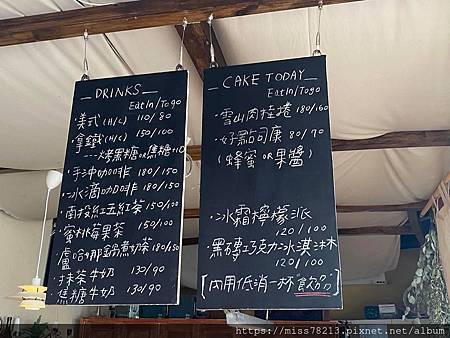 DRINKS
EatIn/Togo
·美式(H/C) 110/80
·拿鐵(H/C) 150/100
---烤黑糖OR焦糖+10
·手沖咖啡 180/150
·冰滴咖啡 180/150
·南投紅玉紅茶 150/100
·蜜料莓果茶 150/100
·盧哈娜鍋煮奶茶 180/150
·抹茶牛奶 130/90
·焦糖牛奶 130/90
CAKE TODAY
EatIn/Togo
·雪山肉桂捲 180/160
·好點司康 80/70
(蜂蜜OR果醬)
·冰霜檸檬派
120/100
·黑磚巧克力冰淇淋
120/100
[內用低消一杯"飲品"]
https://miss78213.pixnet.net/album